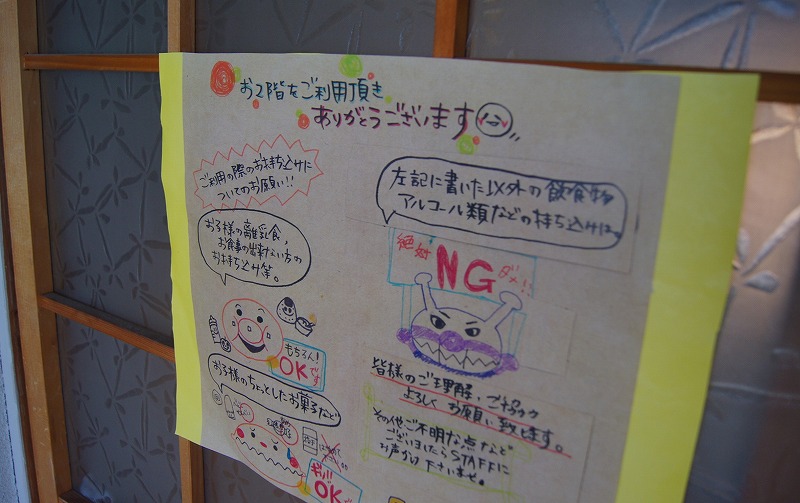 お2階をご利用頂き
ありがとうございます
ご利用の際のお持ち込みに
ついてのお願い!!
お子様の離乳食、
お食事の出来ない方の
お持ち込み等。
もちろん!
OKです
お子様のちょっとしたお菓子など
ギリ!!
OK
左記に書いた以外の飲食物
アルコール類などの持ち込みは、
絶対
NG
ダメ!!
皆様のご理解、ご協力
よろしくお願い致します。
その他ご不明な点など
ございましたらSTAFFに
お声がけ下さいませ。